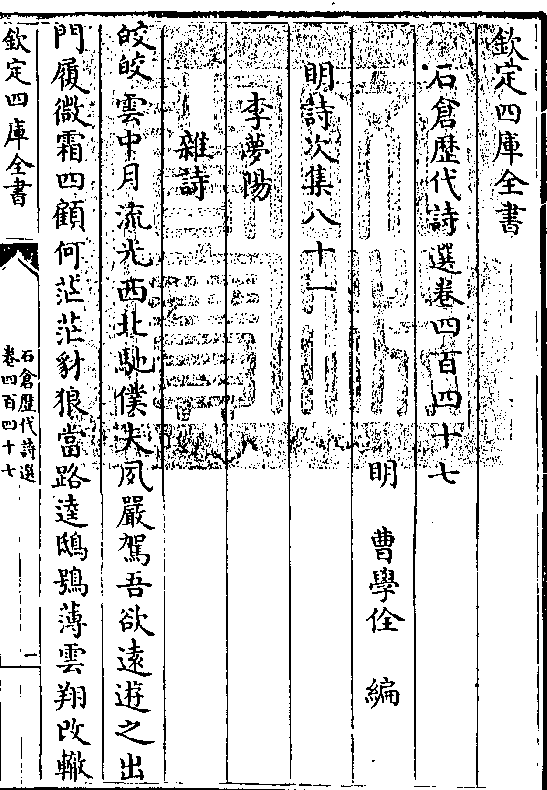 欽定四庫全書
石倉歷代詩選卷四百四十七
明 曹學佺 編
明詩次集八十一
李夢陽
雜詩
皎皎雲中月流光西北馳僕夫夙嚴駕吾欲遠遊之出
門履微霜四顧何茫茫豺狼當路逵鴟鴞薄雲翔改轍
欽定四庫全書
石倉歷代詩選
卷四百四十七
一